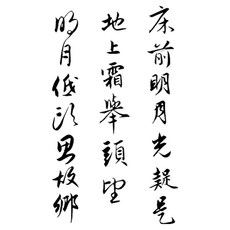 床前明月光疑是
地上霜舉頭望
明月低头思故鄉